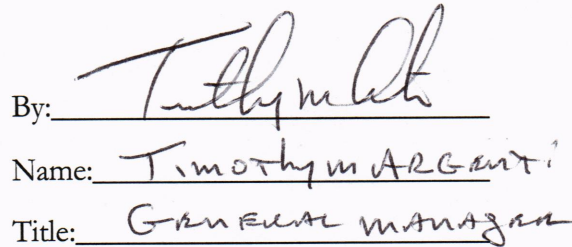 By:
Name: Timothy M ARGENTI
Title: GENERAL MANAGER